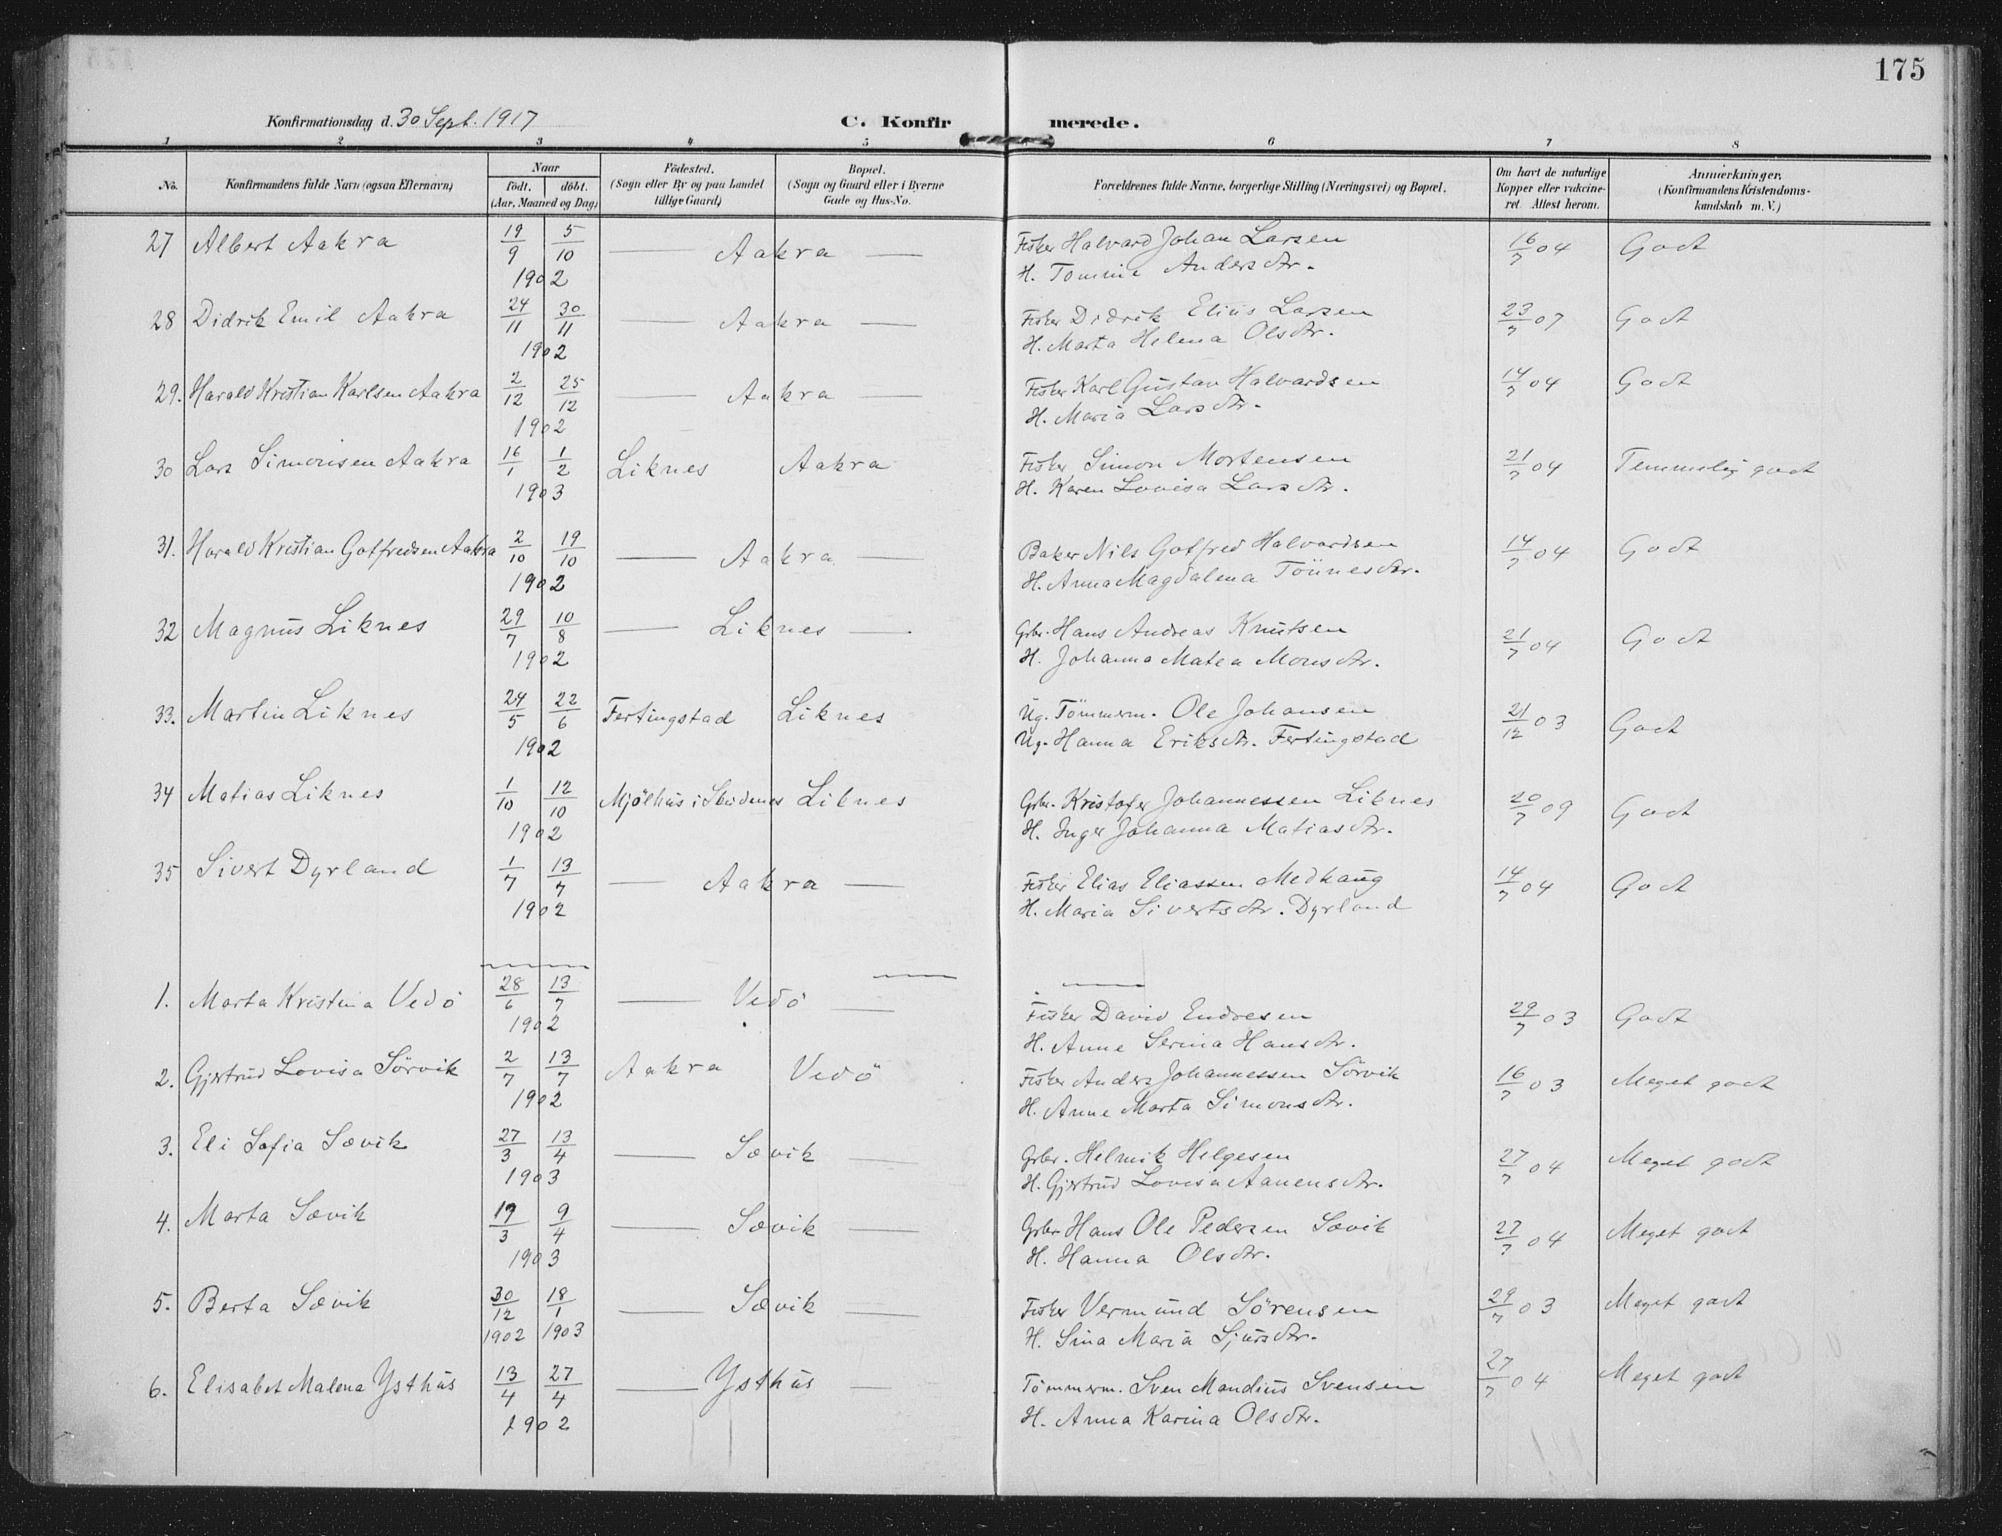 175
Konfirmationsdag d. 30 Sept. 1917 C. Konfirmerede.
1 2 3 4 5 6 7 8
No. Konfirmandens fulde Navn (ogsaa Efternavn) Naar födt. döbt. (Aar, Maaned og Dag) Födested. (Sogn eller By og paa Landet tillige Gaard) Bopæl. (Sogn og Gaard eller i Byerne Gade og Hus-No. Forældrenes fulde Navne, borgerlige Stilling (Næringsvei) og Bopæl. Om havt de naturlige Kopper eller vakcineret. Attest herom. Anmerkninger. (Konfirmandens Kristendomskundskab m. V.)
27 Albert Aakra 19/9 5/10 — Aakra — Fisker Halvard Johan Larsen 16/7 04 Godt
1902 H. Tomine Andersdtr.
28 Didrik Emil Aakra 24/11 30/11 — Aakra — Fisker Didrik Elius Larsen 23/7 07 Godt
1902 H. Marta Helena Olsdtr.
29. Harald Kristian Karlsen Aakra 2/12 25/12 — Aakra — Fisker Karl Gustav Halvardsen 14/7 04 Godt
1902 H. Maria Larsdtr.
30 Lars Simonsen Aakra 16/1 1/2 Liknes Aakra Fisker Simon Mortensen 21/7 04 Temmelig godt
1903 H. Karen Lovisa Larsdtr.
31. Harald Kristian Gotfredsen Aakra 2/10 19/10 — Aakra — Baker Nils Gotfred Halvardsen 14/7 04 Godt
1902 H. Anna Magdalena Tönnesdtr.
32 Magnus Liknes 29/7 10/8 — Liknes — Grbr. Hans Andreas Knutsen 21/7 04 Godt
1902 H. Johanna Matea Monsdtr.
33. Martin Liknes 24/5 22/6 Fertingstad Liknes Ug. Tömmerm. Ole Johansen 21/12 03 Godt
1902 Ug. Hanna Eriksdtr. Fertingstad
34 Matias Liknes 1/10 12/10 Mjölhus i Skudenes Liknes Grbr. Kristofer Johannessen Liknes 20/7 09 Godt
1902 H. Inger Johanna Matiasdtr.
35 Sivert Dyrland 1/7 13/7 — Aakra — Fisker Elias Eliassen Medhaug 14/7 04 Godt
1902 H. Maria Sivertsdtr. Dyrland
1. Marta Kristina Vedö 28/6 13/7 — Vedö — Fisker David Endresen 29/7 03 Godt
1902 H. Anne Serina Hansdtr.
2. Gjertrud Lovisa Sörvik 2/7 13/7 Aakra Vedö Fisker Anders Johannessen Sörvik 16/7 03 Meget godt
1902 H. Anne Marta Simonsdtr.
3. Eli Sofia Sævik 27/3 13/4 — Sævik — Grbr. Helmik Helgesen 27/7 04 Meget godt
1903 H. Gjertrud Lovisa Aanensdtr.
4. Marta Sævik 19/3 9/4 — Sævik — Grbr. Hans Ole Pedersen Sævik 27/7 04 Meget godt
1903 H. Hanna Olsdtr.
5. Berta Sævik 30/12 18/1 — Sævik — Fisker Vermund Sörensen 29/7 03 Meget godt
1902 1903 H. Sina Maria Sjursdtr.
6. Elisabet Malena Ysthus 13/4 27/4 — Ysthus — Tömmerm. Sven Mandius Svensen 27/7 04 Meget godt
1902 H. Anna Karina Olsdtr.